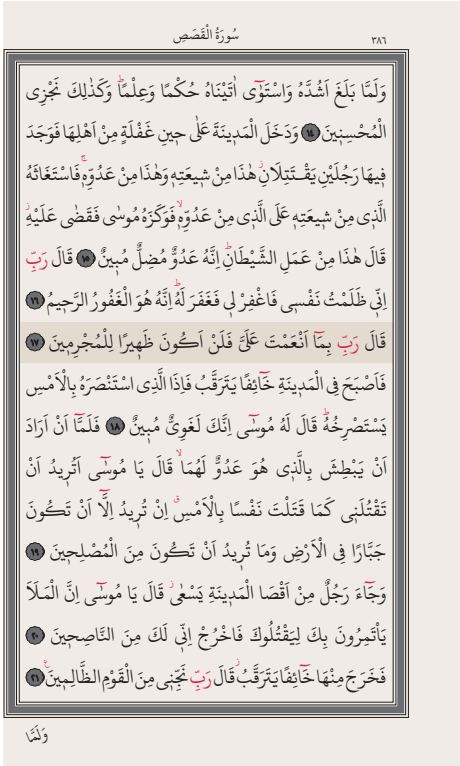 سُورَةُ الْقَصَصِ ٣٨٦
وَلَمَّا بَلَغَ اَشُدَّهُ وَاسْتَوٰٓى اٰتَيْنَاهُ حُكْمًا وَعِلْمًاۜ وَكَذٰلِكَ نَجْزِى
الْمُحْسِن۪ينَ ﴿١٤﴾ وَدَخَلَ الْمَد۪ينَةَ عَلٰى ح۪ينِ غَفْلَةٍ مِنْ اَهْلِهَا فَوَجَدَ
ف۪يهَا رَجُلَيْنِ يَقْتَتِلَانِۘ هٰذَا مِنْ ش۪يعَتِه۪ وَهٰذَا مِنْ عَدُوِّه۪ۚ فَاسْتَغَاثَهُ
الَّذ۪ى مِنْ ش۪يعَتِه۪ عَلَى الَّذ۪ى مِنْ عَدُوِّه۪ۙ فَوَكَزَهُ مُوسٰى فَقَضٰى عَلَيْهِۘ
قَالَ هٰذَا مِنْ عَمَلِ الشَّيْطَانِۜ اِنَّهُ عَدُوٌّ مُضِلٌّ مُب۪ينٌ ﴿١٥﴾ قَالَ رَبِّ
اِنّ۪ى ظَلَمْتُ نَفْس۪ى فَاغْفِرْ ل۪ى فَغَفَرَ لَهُۜ اِنَّهُ هُوَ الْغَفُورُ الرَّح۪يمُ ﴿١٦﴾
قَالَ رَبِّ بِمَٓا اَنْعَمْتَ عَلَىَّ فَلَنْ اَكُونَ ظَه۪يرًا لِلْمُجْرِم۪ينَ ﴿١٧﴾
فَاَصْبَحَ فِى الْمَد۪ينَةِ خَٓائِفًا يَتَرَقَّبُ فَاِذَا الَّذِى اسْتَنْصَرَهُ بِالْاَمْسِ
يَسْتَصْرِخُهُۜ قَالَ لَهُ مُوسٰٓى اِنَّكَ لَغَوِىٌّ مُب۪ينٌ ﴿١٨﴾ فَلَمَّٓا اَنْ اَرَادَ
اَنْ يَبْطِشَ بِالَّذ۪ى هُوَ عَدُوٌّ لَهُمَاۙ قَالَ يَا مُوسٰٓى اَتُر۪يدُ اَنْ
تَقْتُلَن۪ى كَمَا قَتَلْتَ نَفْسًا بِالْاَمْسِۗ اِنْ تُر۪يدُ اِلَّٓا اَنْ تَكُونَ
جَبَّارًا فِى الْاَرْضِ وَمَا تُر۪يدُ اَنْ تَكُونَ مِنَ الْمُصْلِح۪ينَ ﴿١٩﴾
وَجَٓاءَ رَجُلٌ مِنْ اَقْصَا الْمَد۪ينَةِ يَسْعٰىۘ قَالَ يَا مُوسٰٓى اِنَّ الْمَلَاَ
يَاْتَمِرُونَ بِكَ لِيَقْتُلُوكَ فَاخْرُجْ اِنّ۪ى لَكَ مِنَ النَّاصِح۪ينَ ﴿٢٠﴾
فَخَرَجَ مِنْهَا خَٓائِفًا يَتَرَقَّبُۘ قَالَ رَبِّ نَجِّن۪ى مِنَ الْقَوْمِ الظَّالِم۪ينَ۟ ﴿٢١﴾
وَلَمَّا